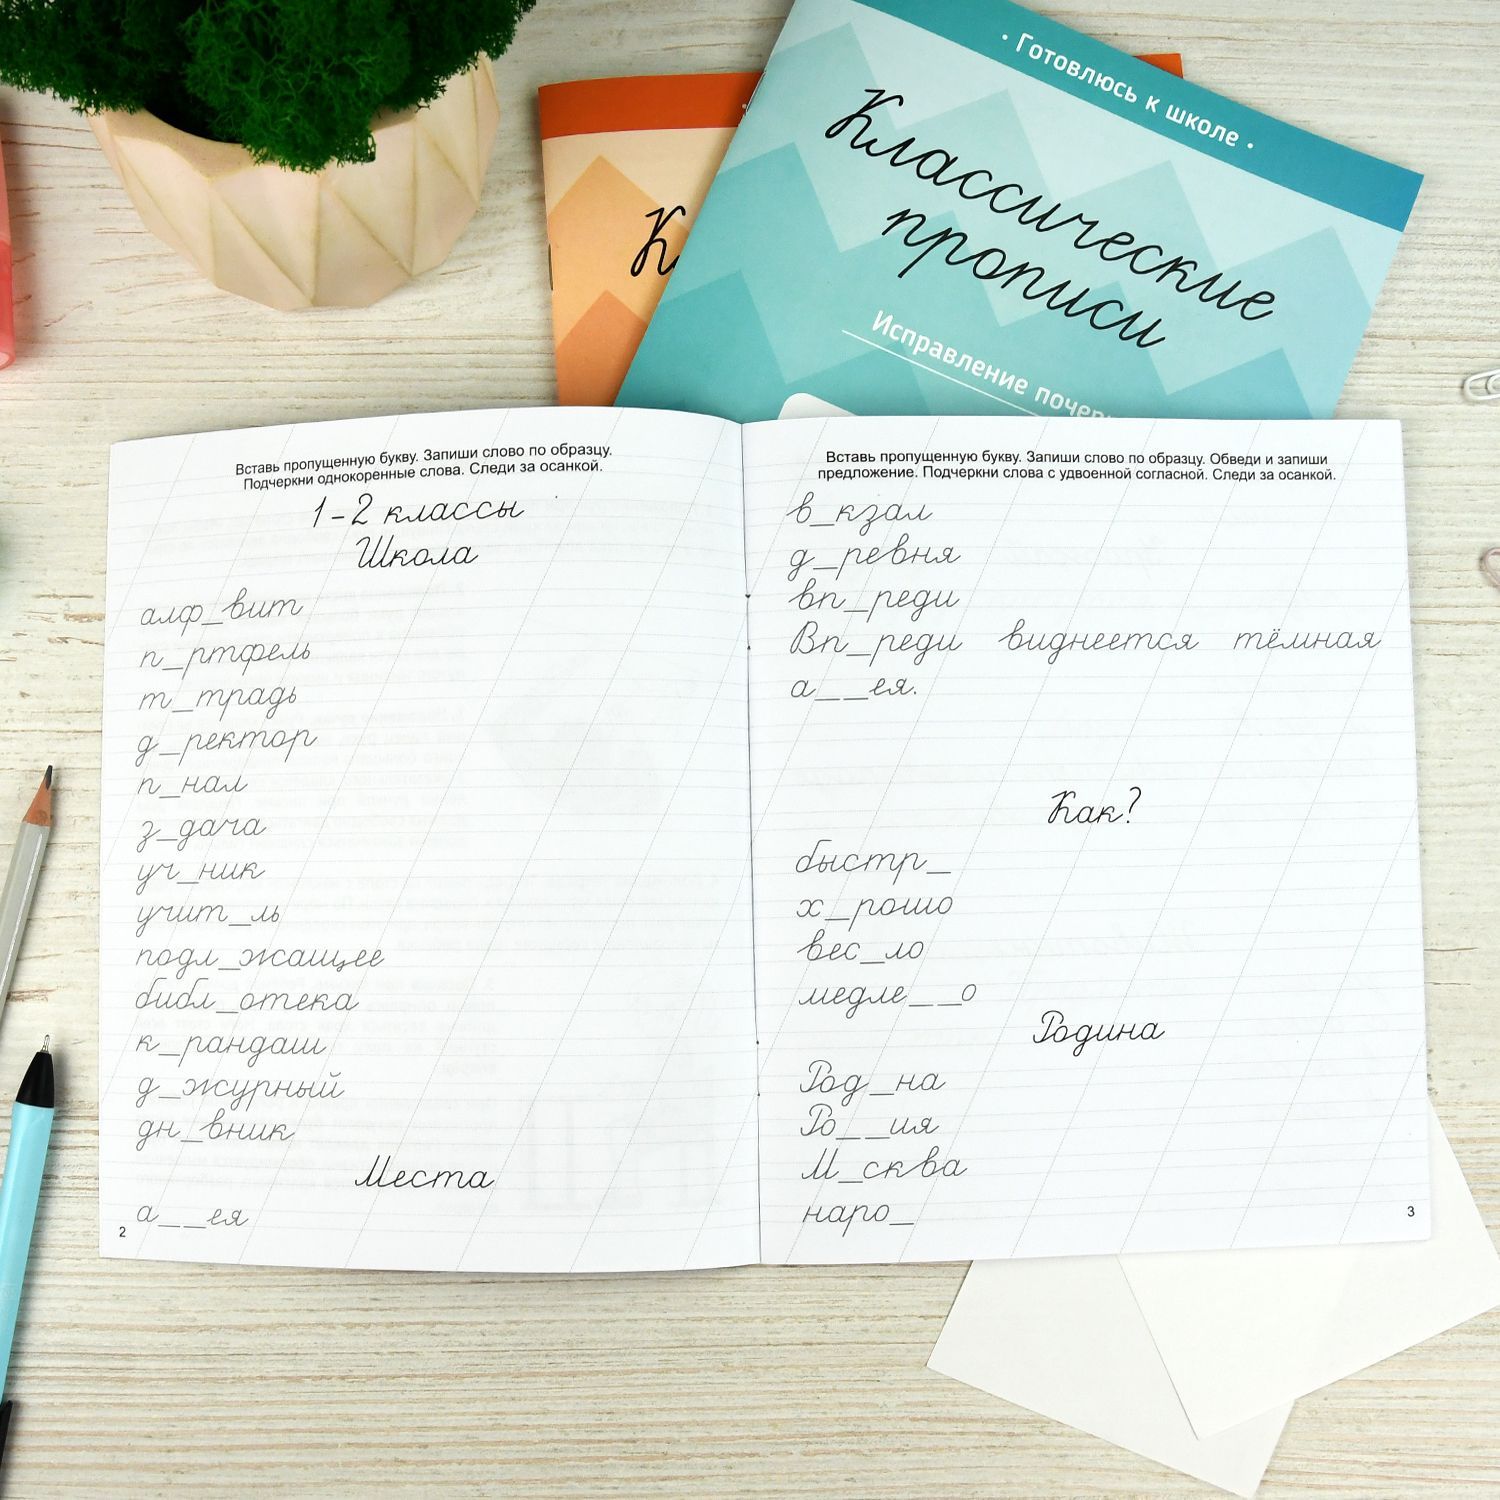 · Готовлюсь к школе ·
Классические
прописи
Исправление
Вставь пропущенную букву. Запиши слово по образцу.
Подчеркни однокоренные слова. Следи за осанкой.
1-2 классы
Школа
алф_вит
п_ртфель
т_традь
д_ректор
п_нал
з_дача
уч_ник
учит_ль
подл_жащее
библ_отека
к_рандаш
д_журный
дн_вник
Места
а__ея
2
Вставь пропущенную букву. Запиши слово по образцу. Обведи и запиши
предложение. Подчеркни слова с удвоенной согласной. Следи за осанкой.
в_кзал
д_ревня
вп_реди
Вп_реди виднеется тёмная
а__ея.
Как?
быстр_
х_рошо
вес_ло
медле__о
Родина
Род_на
Ро__ия
М_сква
наро_
3